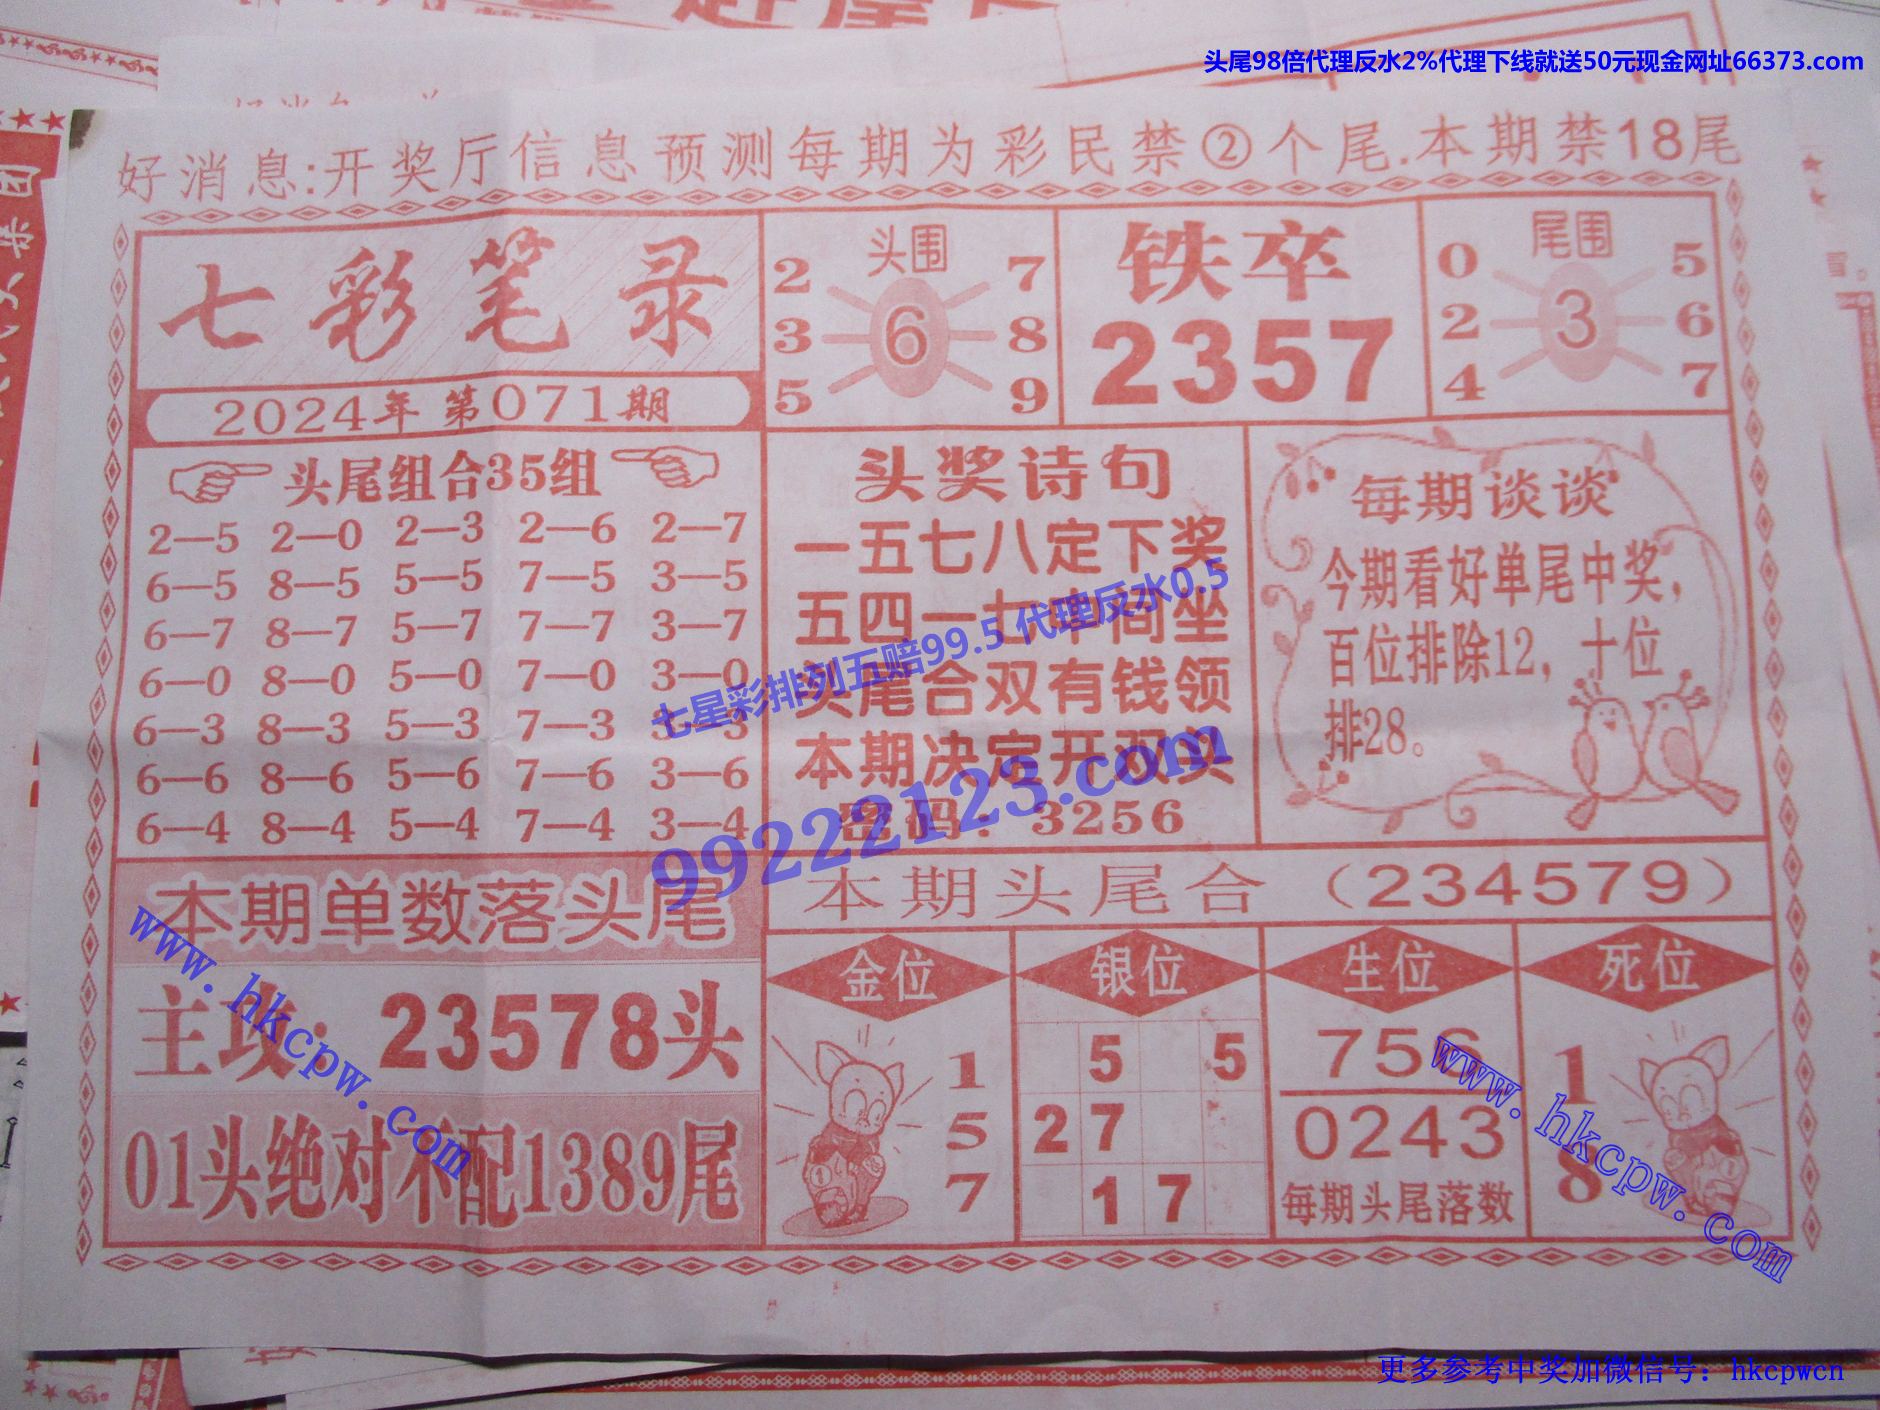 头尾98倍代理反水2%代理下线就送50元现金网址66373.com
好消息:开奖厅信息预测每期为彩民禁②个尾.本期禁18尾
七彩笔录
2024年 第071期
头围
2 7
3 6 8
5 9
铁卒
2357
尾围
0 5
2 3 6
4 7
头尾组合35组
2—5 2—0 2—3 2—6 2—7
6—5 8—5 5—5 7—5 3—5
6—7 8—7 5—7 7—7 3—7
6—0 8—0 5—0 7—0 3—0
6—3 8—3 5—3 7—3 3—3
6—6 8—6 5—6 7—6 3—6
6—4 8—4 5—4 7—4 3—4
头奖诗句
一五七八定下奖
五四一七中间坐
头尾合双有钱领
本期决定开双头
密码: 3256
七星彩排列五赔99.5 代理反水0.5
99222123.com
每期谈谈
今期看好单尾中奖，
百位排除12，十位
排28。
本期单数落头尾
主攻: 23578头
01头绝对不配1389尾
www.hkcpw.com
本期头尾合（234579）
金位
1
5
7
银位
5 5
2 7
1 7
生位
756
0243
每期头尾落数
死位
1
8
www.hkcpw.com
更多参考中奖加微信号: hkcpwcn